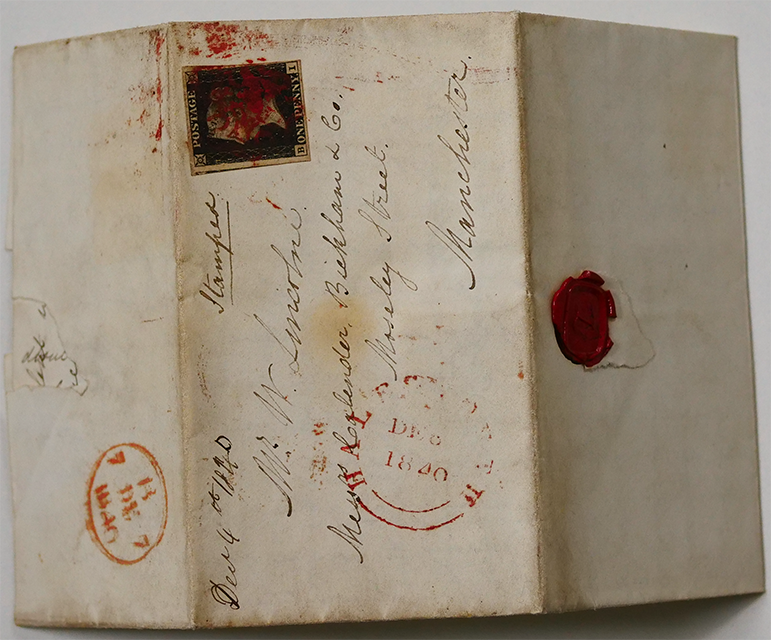 POSTAGE
ONE PENNY
B I
Stamped
1840
Mr. W. Lincolne.
Messrs Calender, Bickham & Co.
Mosely Street.
Manchester.
DE 6
1840
B
7 DE 7
1840